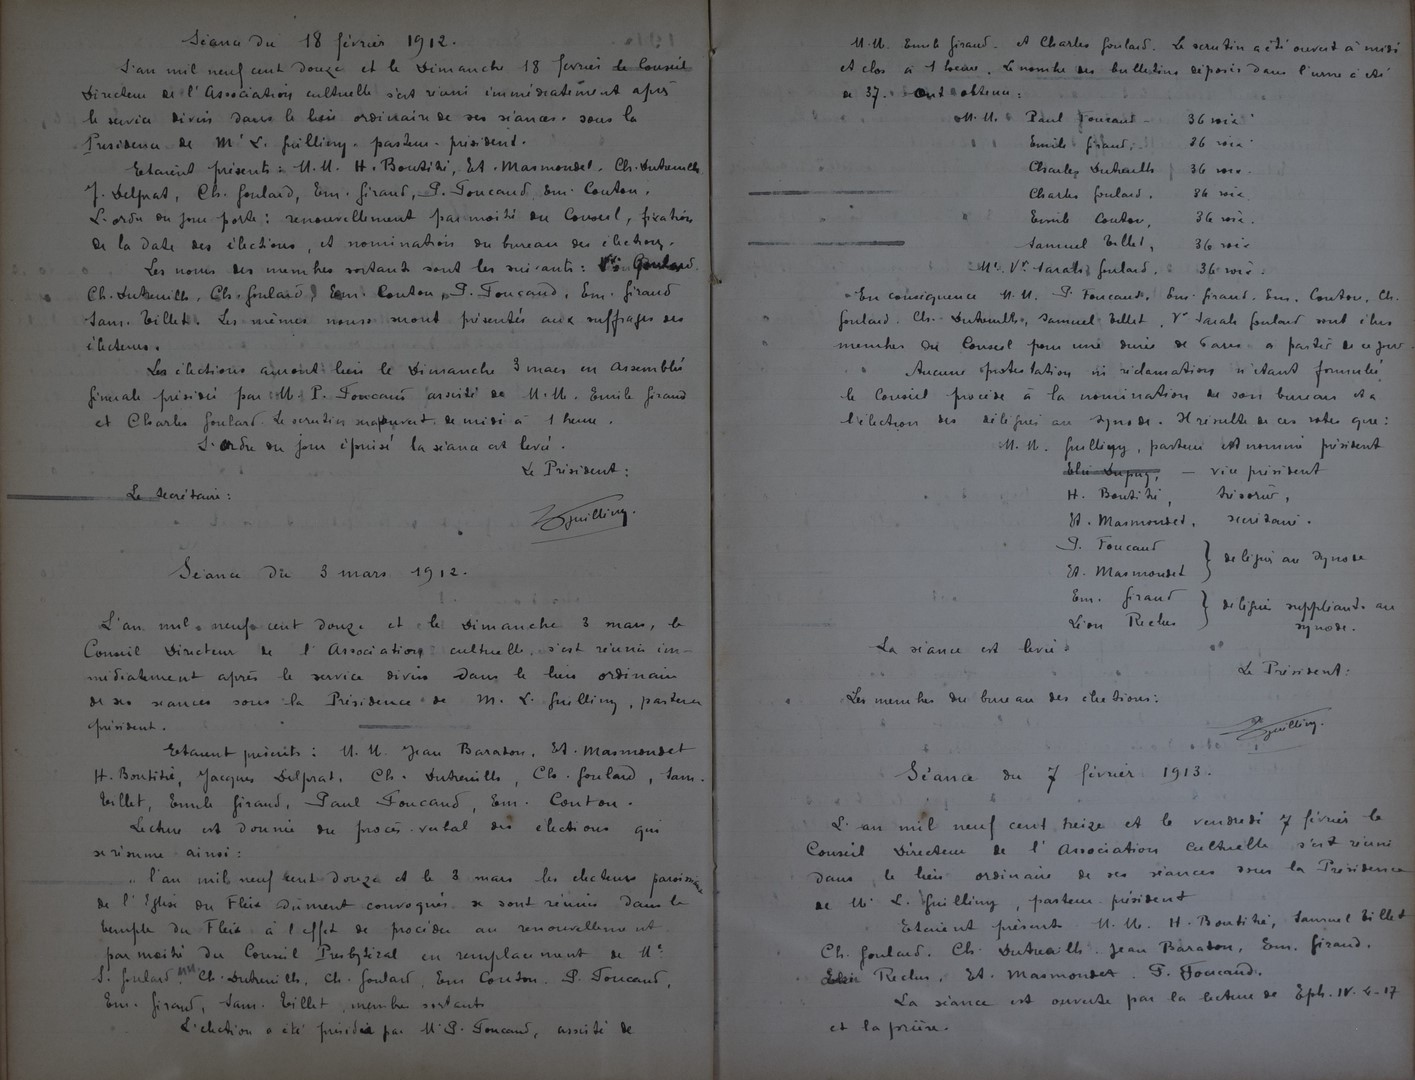 Séance du 18 février 1912.
L'an mil neuf cent douze et le Dimanche 18 février le Conseil
Directeur de l'Association cultuelle s'est réuni immédiatement après
le service divin dans le lieu ordinaire de ses séances. sous la
Présidence de Mr L. Guilliny. pasteur-président.
Etaient présents: M.M. H. Boutitié, Et. Masmondet. Ch. Dutreuilh
J. Delprat, Ch. Goulard, Em. Giraud, P. Foucaud, Em. Couton.
L'ordre du jour porte: renouvellement par moitié du Conseil, fixation
de la date des élections, et nomination du bureau des élections.
Les noms des membres sortants sont les suivants: Vve Goulard.
Ch. Dutreuilh, Ch. Goulard, Em. Couton, P. Foucaud, Em. Giraud
Sam. Tillet. Les mêmes noms seront présentés aux suffrages des
électeurs.
Les élections auront lieu le Dimanche 3 mars en assemblée
générale présidée par M. P. Foucaud assisté de M.M. Emile Giraud
et Charles Goulard. Le scrutin sera ouvert de midi à 1 heure.
L'ordre du jour épuisé la séance est levée.
Le Président:
Le secrétaire:
Guilliny.
Séance du 3 mars 1912.
L'an mil neuf cent douze et le Dimanche 3 mars, le
Conseil Directeur de l'Association cultuelle s'est réuni im-
médiatement après le service divin dans le lieu ordinaire
de ses séances sous la Présidence de M. L. Guilliny, pasteur
président.
Etaient présents: M.M. Jean Baraton, Et. Masmondet
H. Boutitié, Jacques Delprat, Ch. Dutreuilh, Ch. Goulard, Sam.
Tillet, Emile Giraud, Paul Foucaud, Em. Couton.
Lecture est donnée du procès-verbal des élections qui
se résume ainsi:
"l'an mil neuf cent douze et le 3 mars les électeurs paroissiaux
de l'Eglise du Fleix dûment convoqués se sont réunis dans le
temple du Fleix à l'effet de procéder au renouvellement
par moitié du Conseil Presbytéral en remplacement de Me
S. Goulard Ch. Dutreuilh, Ch. Goulard, Em. Couton. P. Foucaud,
Em. Giraud, Sam. Tillet, membres sortants
L'élection a été présidée par M. P. Foucaud, assisté de
M.M. Emile Giraud et Charles Goulard. Le scrutin a été ouvert à midi
et clos à 1 heure. Le nombre des bulletins déposés dans l'urne a été
de 37. Ont obtenu:
M.M. Paul Foucaud - 36 voix
Emile Giraud, 36 voix
Charles Dutreuilh 36 voix
Charles Goulard. 36 voix
Emile Couton, 36 voix.
Samuel Tillet, 36 voix
Me Ve Sarah Goulard. 36 voix.
En conséquence M.M. P. Foucaud, Em. Giraud. Em. Couton, Ch.
Goulard. Ch. Dutreuilh, Samuel Tillet, Ve Sarah Goulard sont élus
membres du Conseil pour une durée de 6 ans à partir de ce jour.
Aucune protestation ni réclamation n'étant formulée
le Conseil procède à la nomination de son bureau et à
l'élection des délégués au synode. Il résulte de ces votes que:
M.M. Guilliny, pasteur est nommé président
Elie Dupuy, — vice président
H. Boutitié, trésorier,
Et. Masmondet, secrétaire.
P. Foucaud
Et. Masmondet } délégués au synode
Em. Giraud
Léon Reclus } délégués suppléants au
synode.
La séance est levée.
Le Président:
Les membres du bureau des élections:
Guilliny.
Séance du 7 février 1913.
L'an mil neuf cent treize et le vendredi 7 février le
Conseil Directeur de l'Association cultuelle s'est réuni
dans le lieu ordinaire de ses séances sous la Présidence
de Mr L. Guilliny, pasteur président
Etaient présents M.M. H. Boutitié, Samuel Tillet
Ch. Goulard. Ch. Dutreuilh. Jean Baraton, Em. Giraud.
Reclus, Et. Masmondet. P. Foucaud.
La séance est ouverte par la lecture de Eph. IV. 4-17
et la prière.